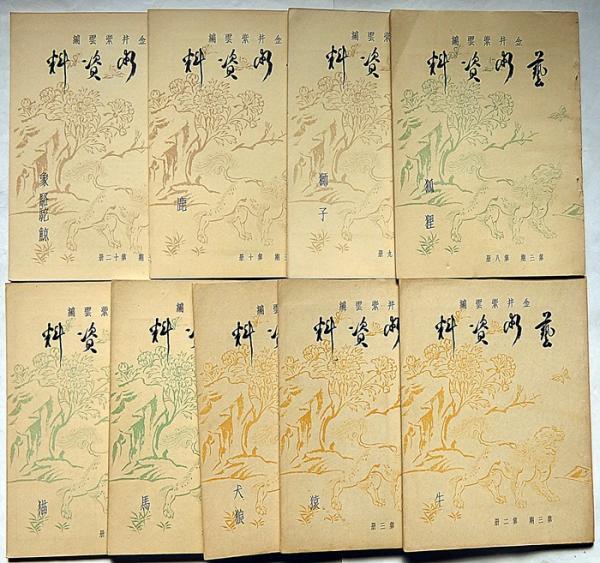 金井紫雲編
術資料
象駱駝鯨
期 第十二冊
金井紫雲編
術資料
鹿
期 第十冊
井紫雲編
資料
獅子
九冊
金井紫雲編
藝術資料
狐狸
第三期 第八冊
紫雲編
資料
猫
冊
雲編
資料
馬
編
資料
犬狼
井紫雲編
術資料
猿
第三冊
金井紫雲編
藝術資料
牛
第三期 第二冊